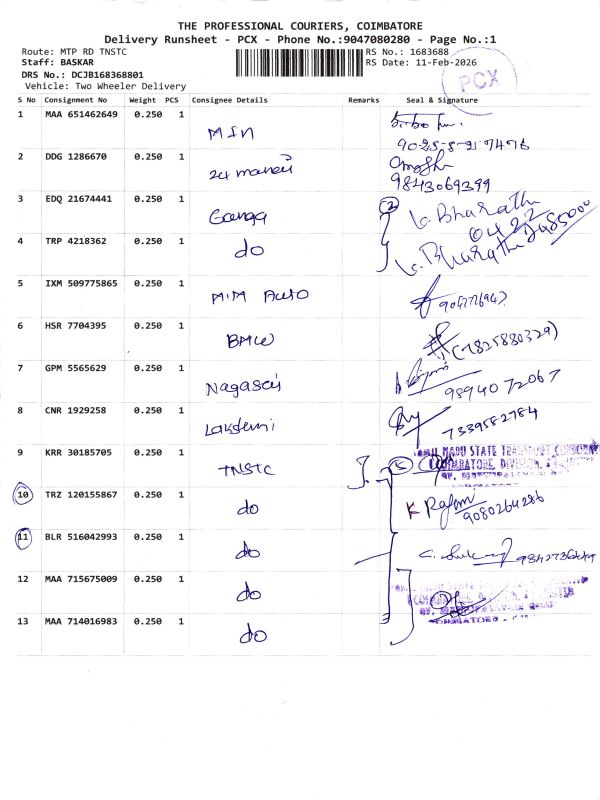 THE PROFESSIONAL COURIERS, COIMBATORE
Delivery Runsheet - PCX - Phone No.:9047080280 - Page No.:1
Route: MTP RD TNSTC
RS No.: 1683688
Staff: BASKAR
RS Date: 11-Feb-2026
DRS No.: DCJB168368801
PCX
Vehicle: Two Wheeler Delivery
S No Consignment No Weight PCS Consignee Details Remarks Seal & Signature
1 MAA 651462649 0.250 1 MIN
2 DDG 1286670 0.250 1 24 manai
9843069399
3 EDQ 21674441 0.250 1 Ganga 2 G. Bharath
0422
4 TRP 4218362 0.250 1 do G. Bharath
5 IXM 509775865 0.250 1 MIM Auto
6 HSR 7704395 0.250 1 BMW (7825880329)
7 GPM 5565629 0.250 1 Nagasai 9894072067
8 CNR 1929258 0.250 1 Lakshmi 7339582784
9 KRR 30185705 0.250 1 TNSTC 5 TAMIL NADU STATE TRANSPORT
COIMBATORE, DIVISION
10 TRZ 120155867 0.250 1 do
9080264286
11 BLR 516042993 0.250 1 do
12 MAA 715675009 0.250 1 do
13 MAA 714016983 0.250 1 do